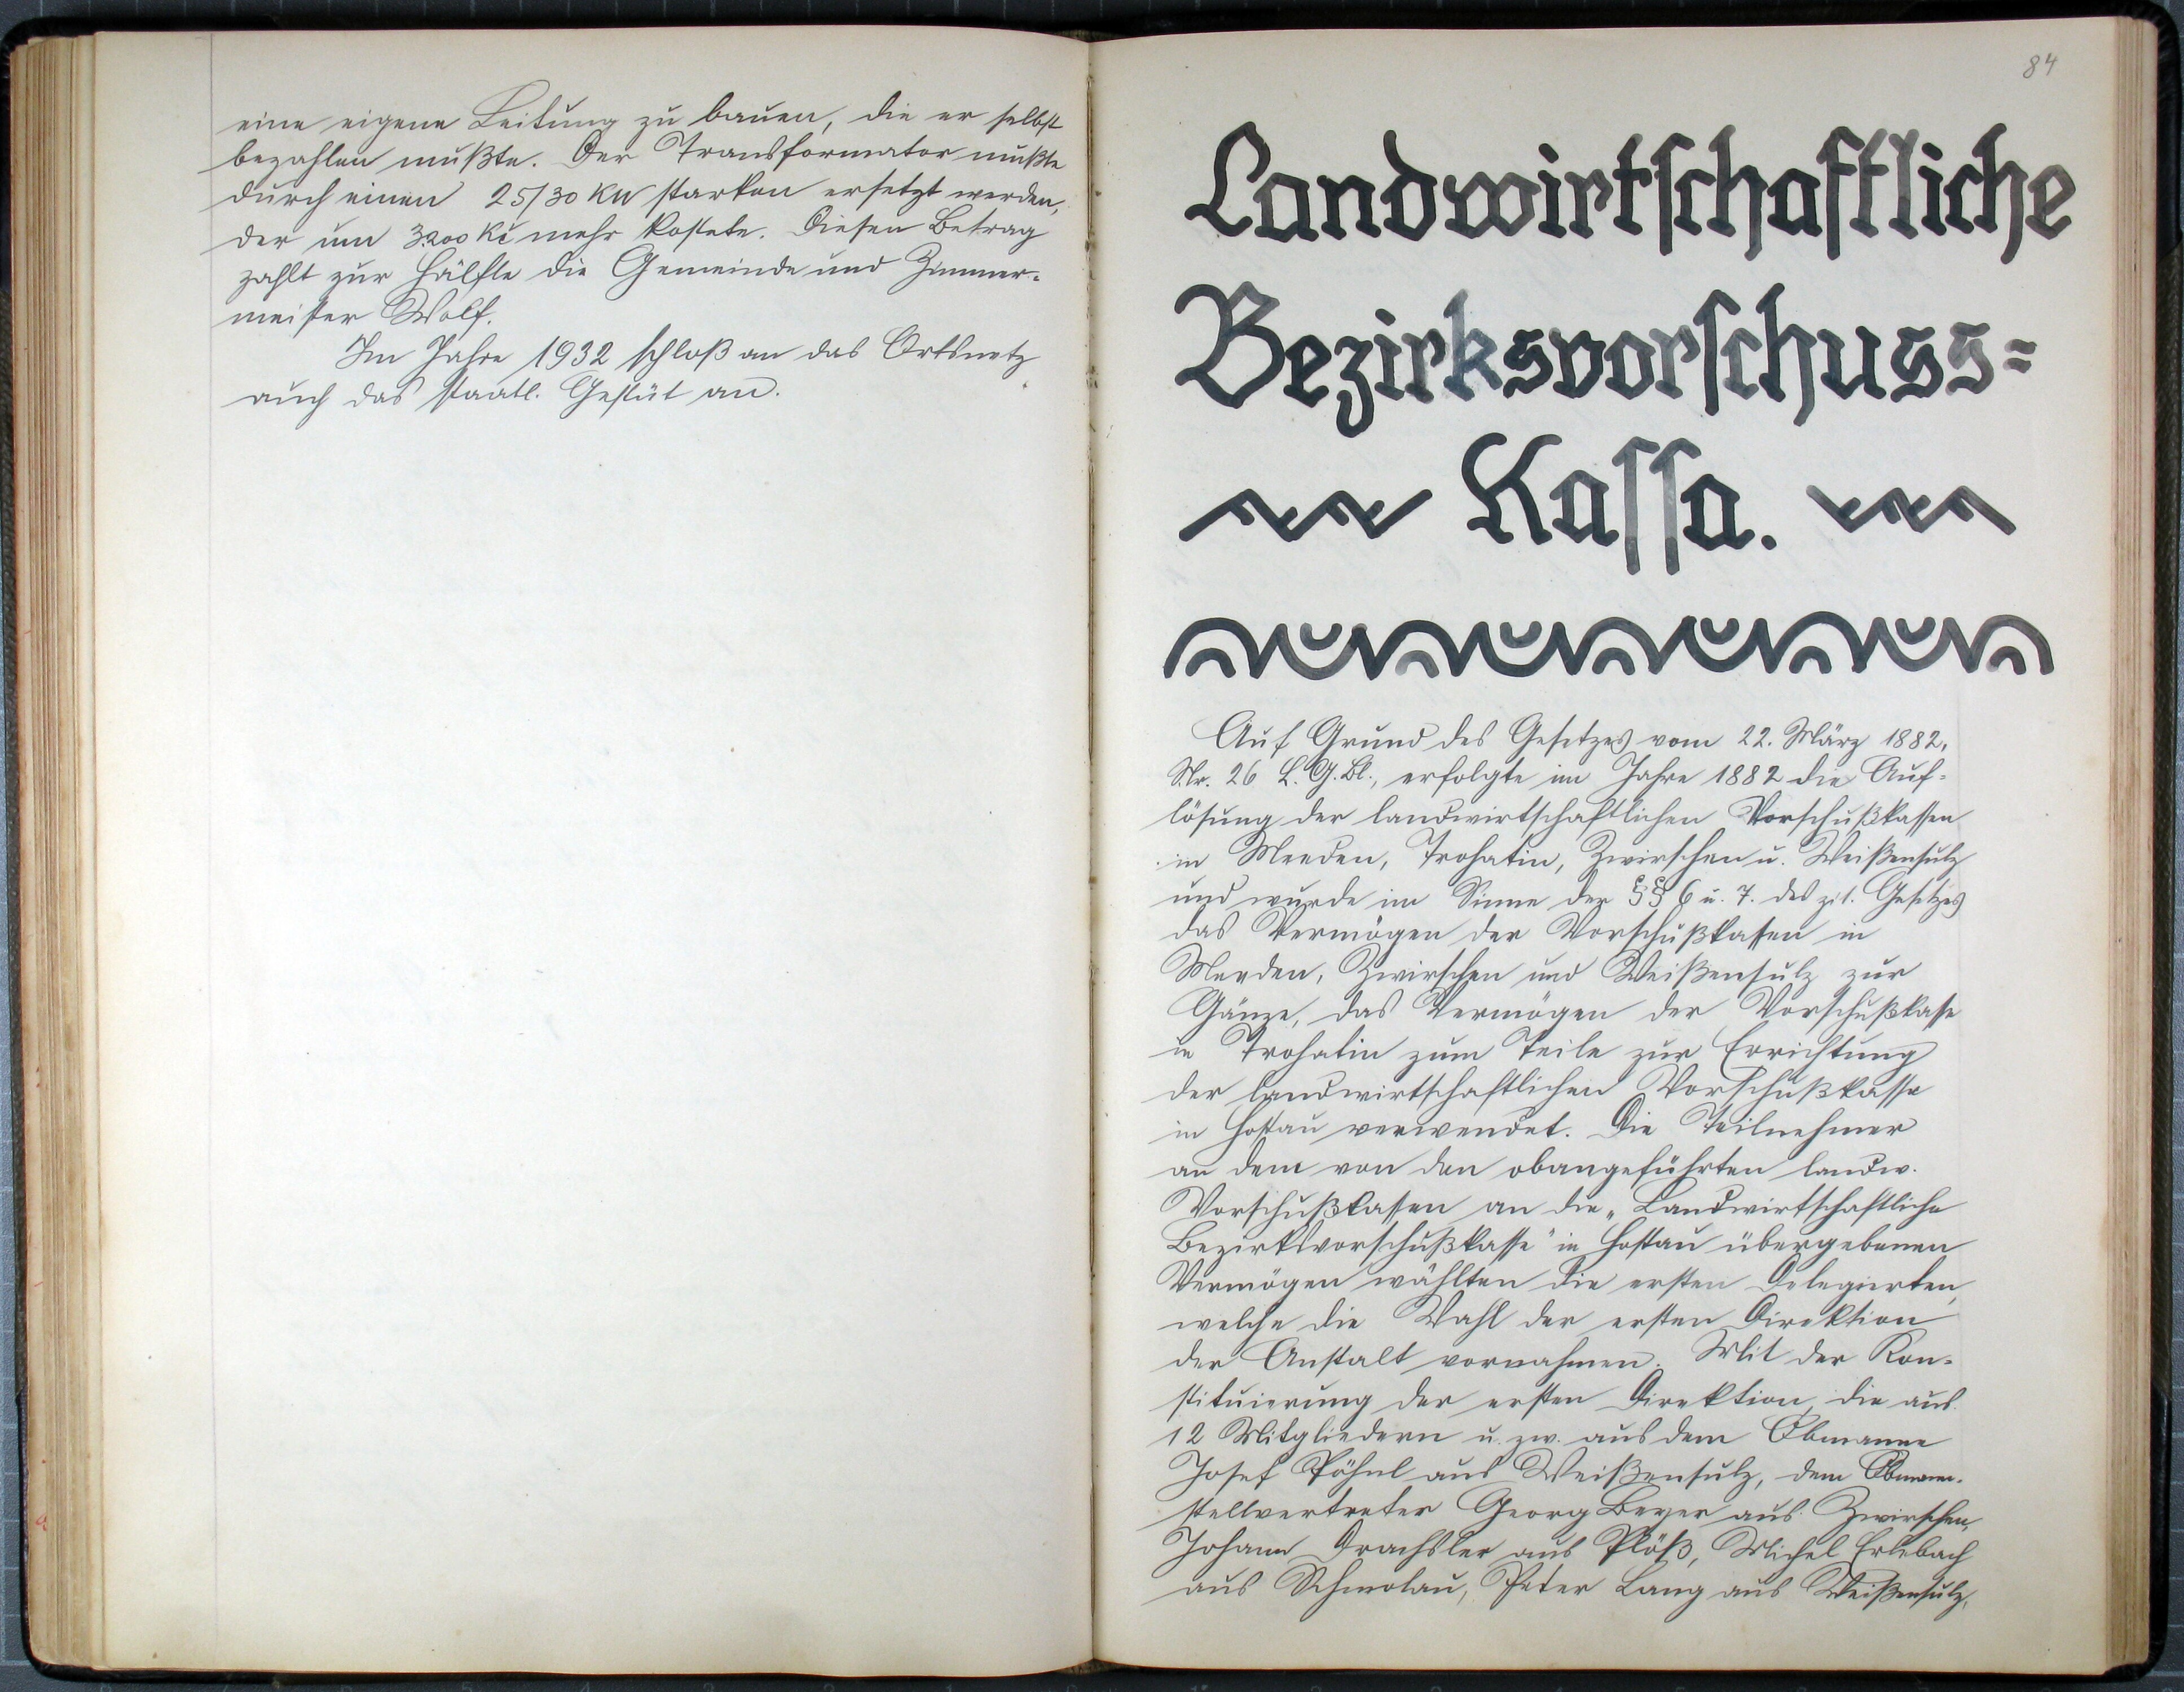 eine eigene Leitung zu bauen, die er selbst
bezahlen mußte. Der Transformator mußte
durch einen 25/30 KW starken ersetzt werden,
der um 3200 Kč mehr kostete. Diesen Betrag
zahlt zur Hälfte die Gemeinde und Zimmer-
meister Wolf.
Im Jahre 1932 schloß an das Ortsnetz
auch das staatl. Gestüt an.
84
Landwirtschaftliche
Bezirksvorschuss=
Kassa.
Auf Grund des Gesetzes vom 22. März 1882,
Nr. 26 L.G.Bl., erfolgte im Jahre 1882 die Auf-
lösung der landwirtschaftlichen Vorschußkassen
in Meeden, Trohatin, Zwirschen u. Weißensulz
und wurde im Sinne der §§ 6 u. 7. des zit. Gesetzes
das Vermögen der Vorschußkassen in
Meeden, Zwirschen und Weißensulz zur
Gänze, das Vermögen der Vorschußkasse
in Trohatin zum Teile zur Errichtung
der landwirtschaftlichen Vorschußkasse
in Hostau verwendet. Die Teilnehmer
an dem von den obangeführten landw.
Vorschußkassen an die „Landwirtschaftliche
Bezirksvorschußkasse" in Hostau übergebenen
Vermögen wählten die ersten Delegierten,
welche die Wahl der ersten Direktion
der Anstalt vornahmen. Mit der Kon-
stituierung der ersten Direktion, die aus
12 Mitgliedern u. zw. aus dem Obmanne
Josef Pöhnl aus Weißensulz, dem Obmann-
stellvertreter Georg Beyer aus Zwirschen,
Johann Drachsler aus Plöß, Michel Erlebach
aus Schmolau, Peter Lang aus Weißensulz,